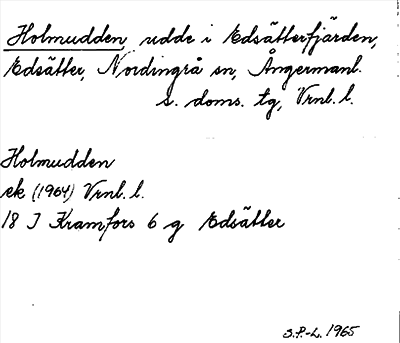 Holmudden, udde i Edsätterfjärden,
Edsätter, Nordingrå sn, Ångermanl.
s. doms. tg, Vrnl. l.
Holmudden
ek (1964) Vrnl. l.
18 J Kramfors 6 g Edsätter
S.P.-L. 1965